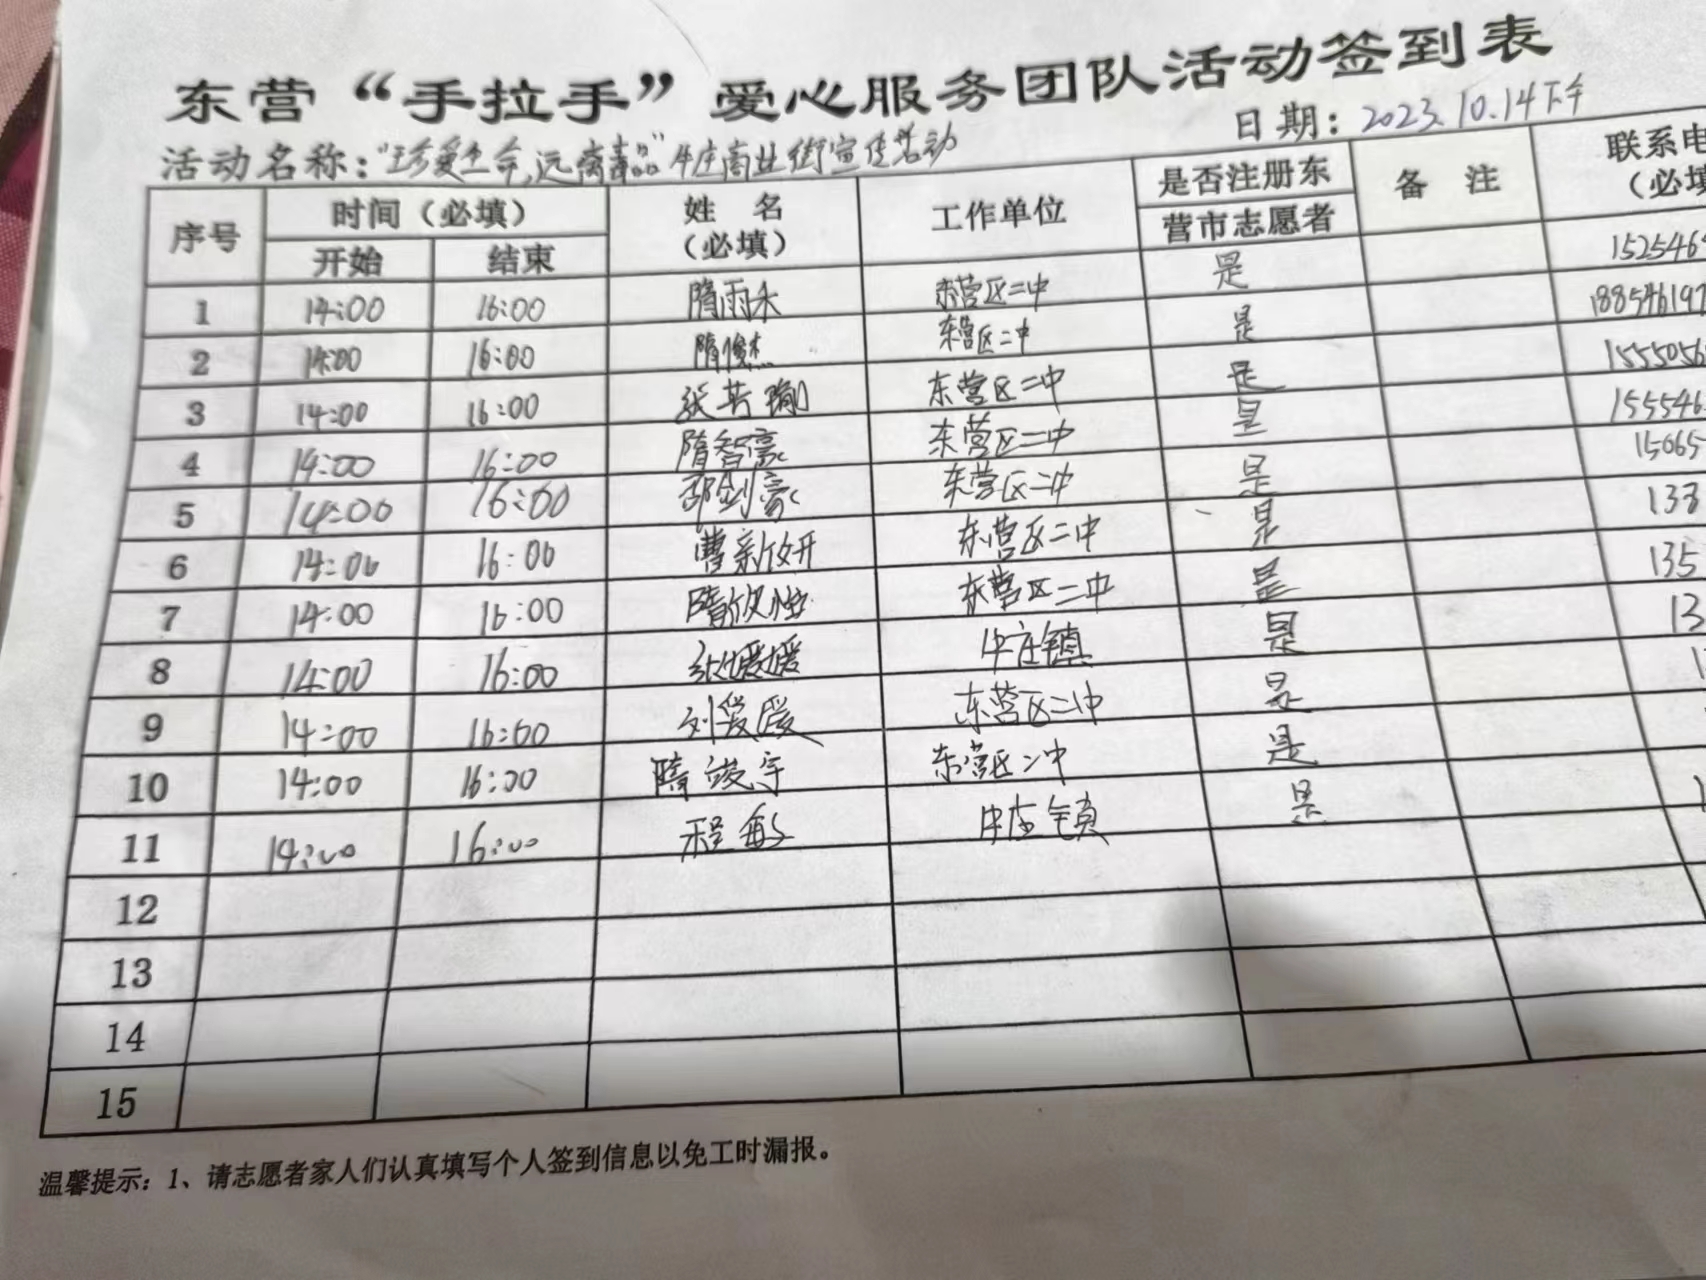 东营“手拉手”爱心服务团队活动签到表
日期：2023.10.14下午
活动名称：“珍爱生命，远离毒品”牛庄商业街宣传活动
序号 时间（必填） 姓名（必填） 工作单位 是否注册东营市志愿者 备注 联系电（必填
开始 结束
1 14:00 16:00 隋雨禾 东营区二中 是 1525465
2 14:00 16:00 隋俊杰 东营区二中 是 188546197
3 14:00 16:00 张芸瑜 东营区二中 是 1555056
4 14:00 16:00 隋智豪 东营区二中 是 155546
5 14:00 16:00 邵剑豪 东营区二中 是 15065
6 14:00 16:00 曹新妍 东营区二中 是 138
7 14:00 16:00 隋欣怡 东营区二中 是 135
8 14:00 16:00 张媛媛 牛庄镇 是 13
9 14:00 16:00 刘爱爱 东营区二中 是 1
10 14:00 16:00 隋竣宇 东营区二中 是
11 14:00 16:00 程敏 牛庄镇 是 1
12
13
14
15
温馨提示：1、请志愿者家人们认真填写个人签到信息以免工时漏报。